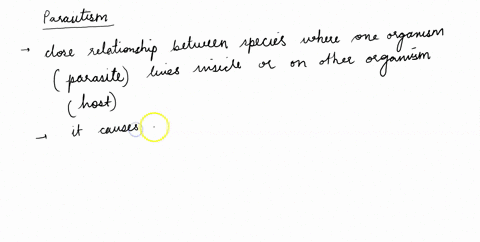 Parasitism
→ close relationship between species where one organism
(parasite) lives inside or on other organism
(host)
→ it causes